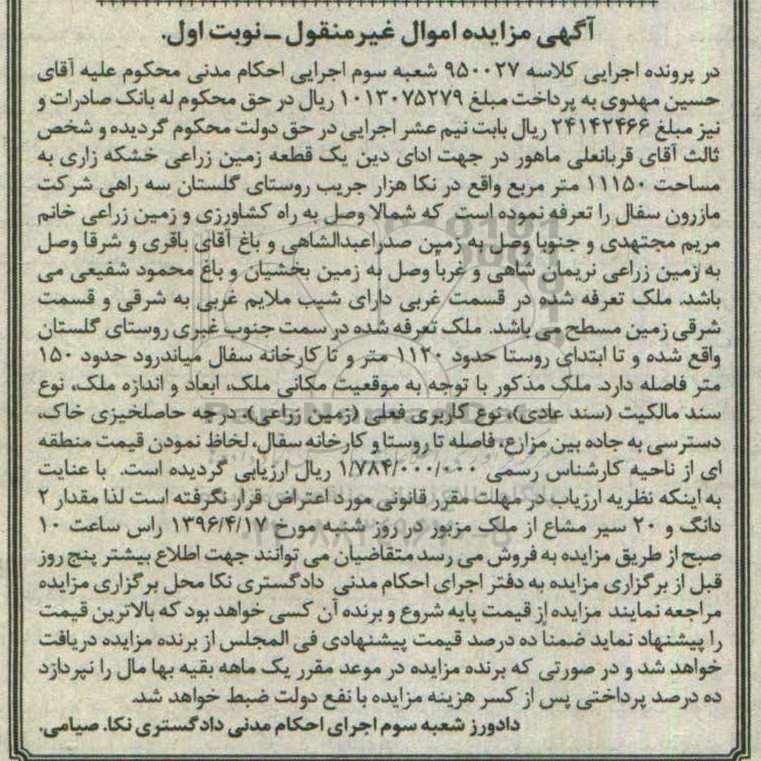 آگهی مزایده اموال غیرمنقول ـ نوبت اول.
در پرونده اجرایی کلاسه ۹۵۰۰۲۷ شعبه سوم اجرایی احکام مدنی محکوم علیه آقای
حسین مهدوی به پرداخت مبلغ ۱۰۱۳۰۷۵۲۷۹ ریال در حق محکوم له بانک صادرات و
نیز مبلغ ۲۴۱۴۲۴۶۶ ریال بابت نیم عشر اجرایی در حق دولت محکوم گردیده و شخص
ثالث آقای قربانعلی ماهور در جهت ادای دین یک قطعه زمین زراعی خشکه زاری به
مساحت ۱۱۱۵۰ متر مربع واقع در نکا هزار جریب روستای گلستان سه راهی شرکت
مازرون سفال را تعرفه نموده است که شمالا وصل به راه کشاورزی و زمین زراعی خانم
مریم مجتهدی و جنوبا وصل به زمین صدراعبدالشاهی و باغ آقای باقری و شرقا وصل
به زمین زراعی نریمان شاهی و غرباً وصل به زمین بخشیان و باغ محمود شفیعی می
باشد. ملک تعرفه شده در قسمت غربی دارای شیب ملایم غربی به شرقی و قسمت
شرقی زمین مسطح می باشد. ملک تعرفه شده در سمت جنوب غبری روستای گلستان
واقع شده و تا ابتدای روستا حدود ۱۱۲۰ متر و تا کارخانه سفال میاندرود حدود ۱۵۰
متر فاصله دارد. ملک مذکور با توجه به موقعیت مکانی ملک، ابعاد و اندازه ملک، نوع
سند مالکیت (سند عادی)، نوع کاربری فعلی (زمین زراعی)، درجه حاصلخیزی خاک،
دسترسی به جاده بین مزارع، فاصله تا روستا و کارخانه سفال، لحاظ نمودن قیمت منطقه
ای از ناحیه کارشناس رسمی ۱/۷۸۴/۰۰۰/۰۰۰ ریال ارزیابی گردیده است. با عنایت
به اینکه نظریه ارزیاب در مهلت مقرر قانونی مورد اعتراض قرار نگرفته است لذا مقدار ۲
دانگ و ۲۰ سیر مشاع از ملک مزبور در روز شنبه مورخ ۱۳۹۶/۴/۱۷ راس ساعت ۱۰
صبح از طریق مزایده به فروش می رسد متقاضیان می توانند جهت اطلاع بیشتر پنج روز
قبل از برگزاری مزایده به دفتر اجرای احکام مدنی دادگستری نکا محل برگزاری مزایده
مراجعه نمایند مزایده از قیمت پایه شروع و برنده آن کسی خواهد بود که بالاترین قیمت
را پیشنهاد نماید ضمناً ده درصد قیمت پیشنهادی فی المجلس از برنده مزایده دریافت
خواهد شد و در صورتی که برنده مزایده در موعد مقرر یک ماهه بقیه بها مال را نپردازد
ده درصد پرداختی پس از کسر هزینه مزایده با نفع دولت ضبط خواهد شد.
دادورز شعبه سوم اجرای احکام مدنی دادگستری نکا. صیامی.